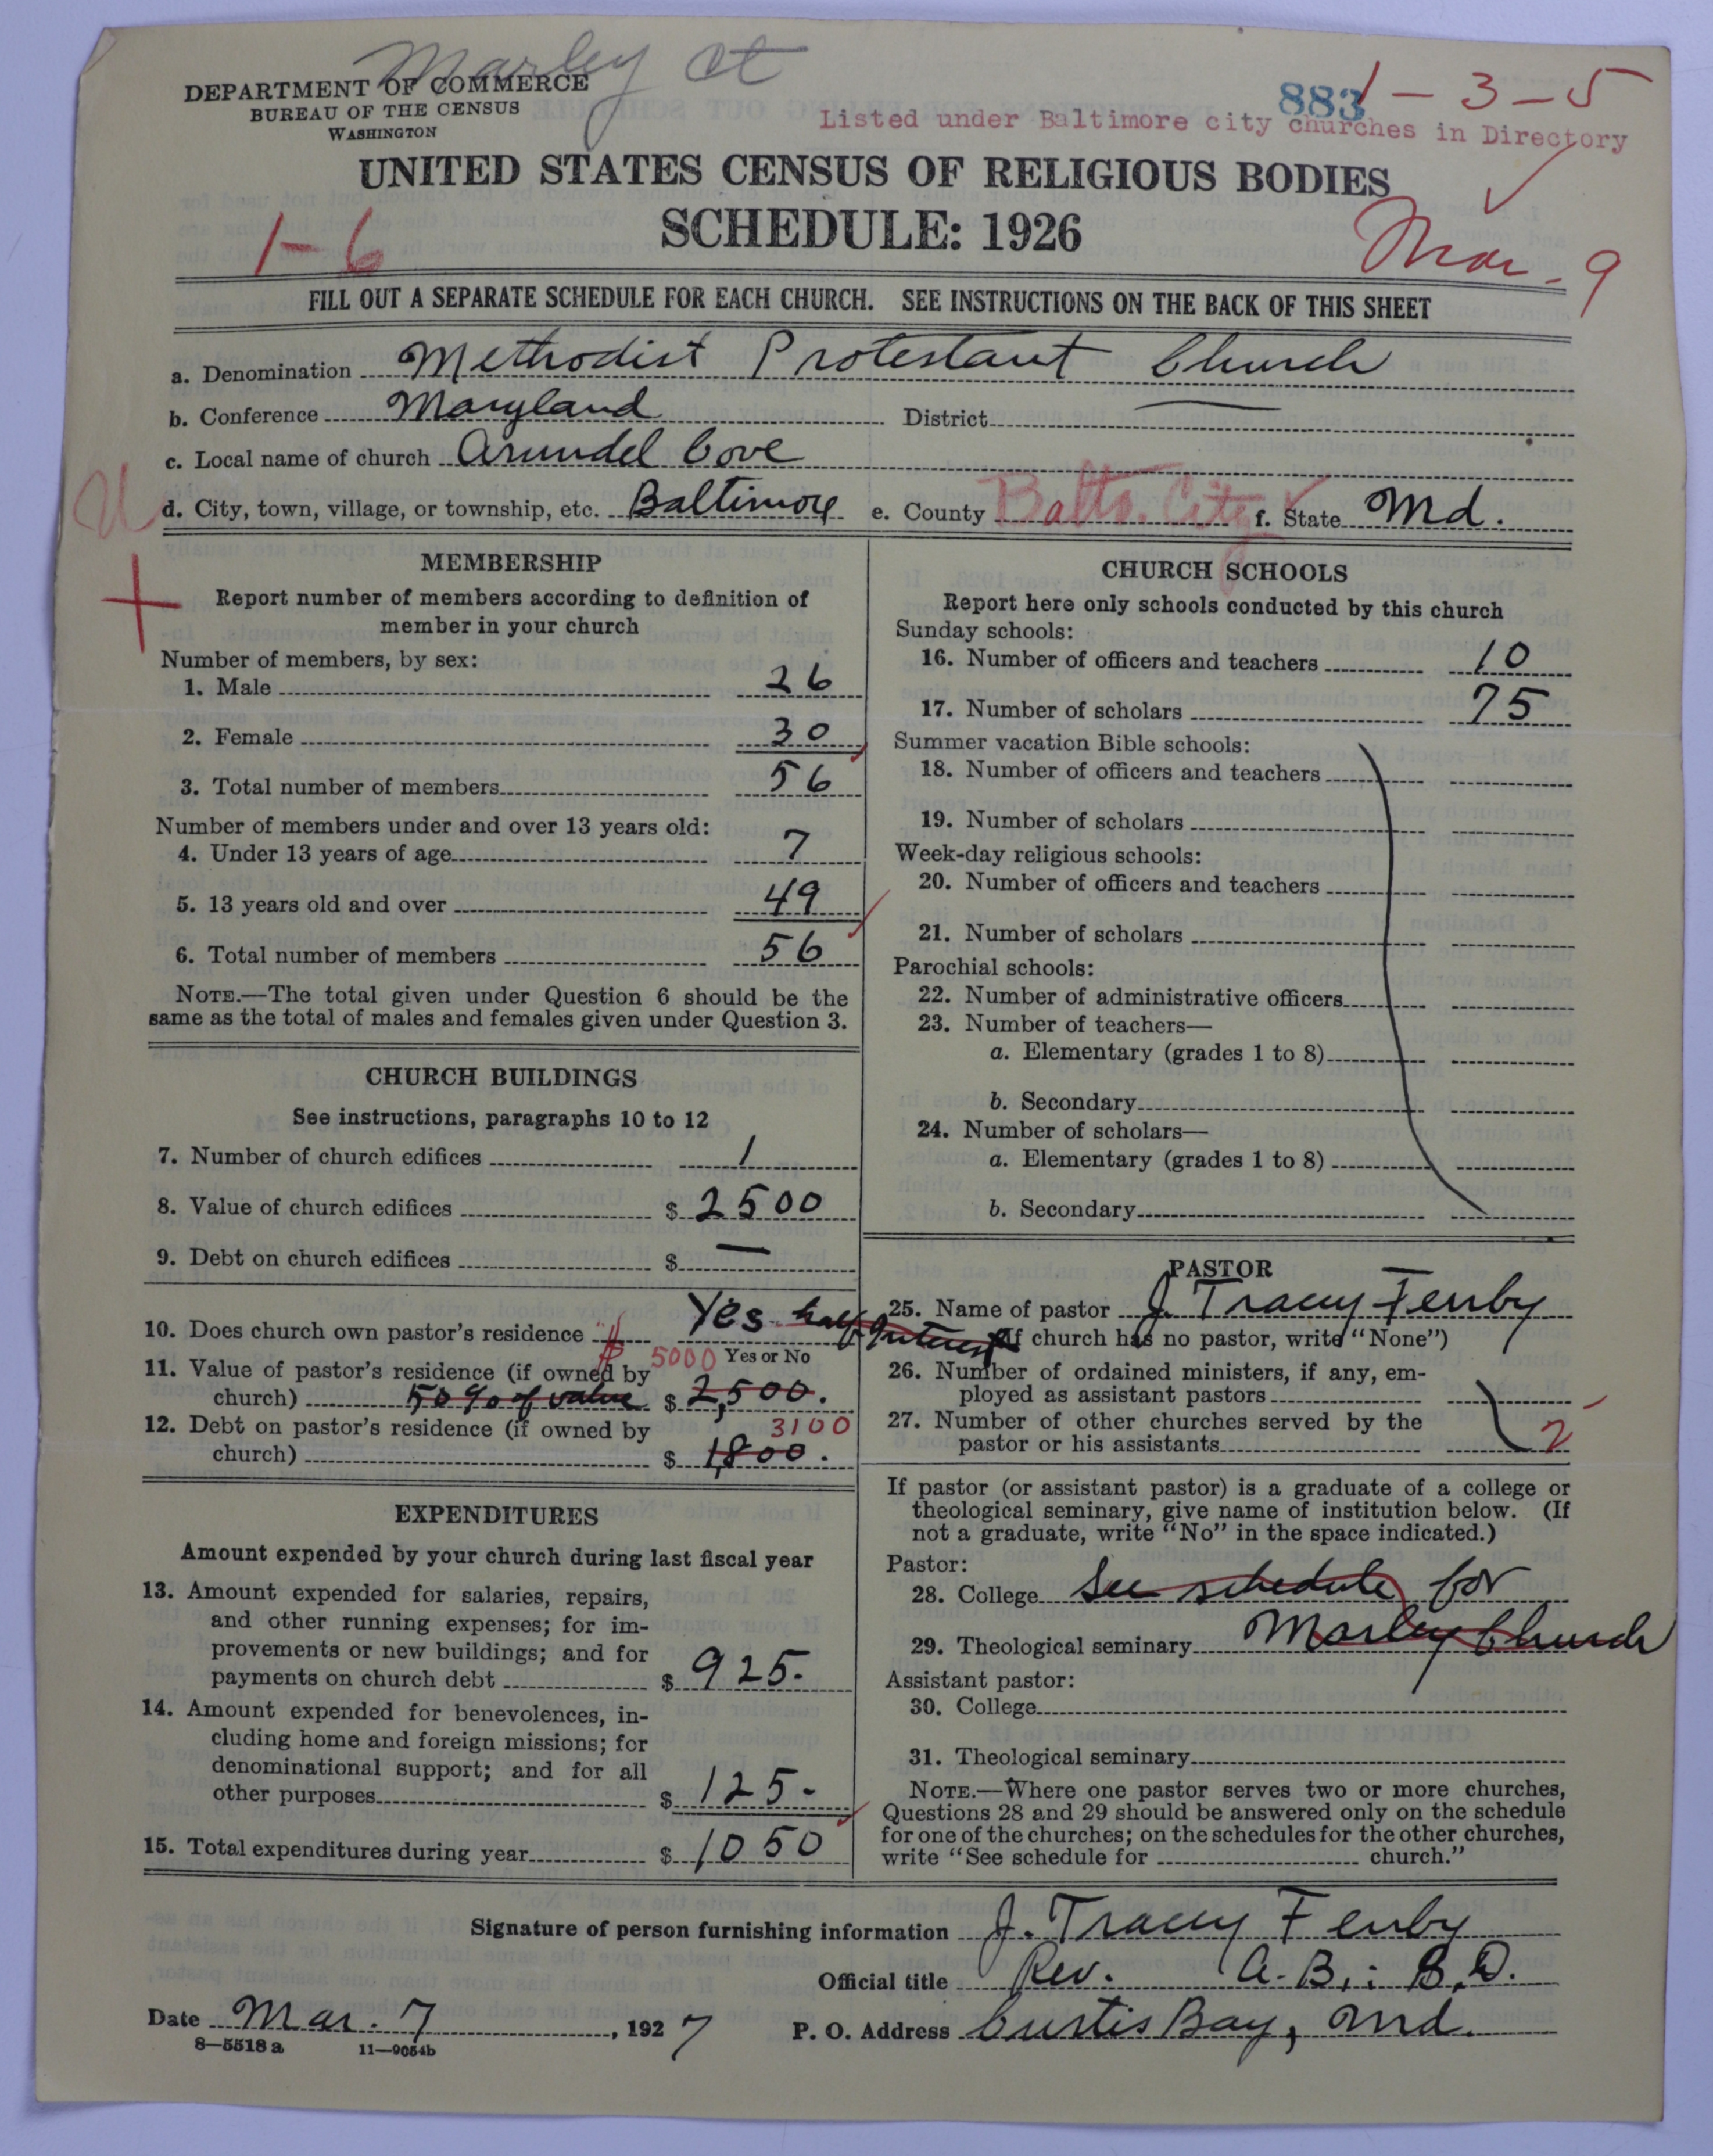 Marley Ct
DEPARTMENT OF COMMERCE
BUREAU OF THE CENSUS
WASHINGTON
883
1-3-5
Listed under Baltimore city churches in Directory
UNITED STATES CENSUS OF RELIGIOUS BODIES
SCHEDULE: 1926
1-6
Mar-9
FILL OUT A SEPARATE SCHEDULE FOR EACH CHURCH. SEE INSTRUCTIONS ON THE BACK OF THIS SHEET
a. Denomination Methodist Protestant Church
b. Conference Maryland District —
c. Local name of church Arundel Cove
d. City, town, village, or township, etc. Baltimore e. County Balto. City f. State Md.
MEMBERSHIP
Report number of members according to definition of
member in your church
Number of members, by sex:
1. Male 26
2. Female 30
3. Total number of members 56
Number of members under and over 13 years old:
4. Under 13 years of age 7
5. 13 years old and over 49
6. Total number of members 56
NOTE.—The total given under Question 6 should be the
same as the total of males and females given under Question 3.
CHURCH BUILDINGS
See instructions, paragraphs 10 to 12
7. Number of church edifices 1
8. Value of church edifices $ 2500
9. Debt on church edifices $ —
10. Does church own pastor's residence Yes half interest
Yes or No
11. Value of pastor's residence (if owned by 5000
church) 50% of value $ 2,500.
12. Debt on pastor's residence (if owned by 3100
church) $ 1,800.
EXPENDITURES
Amount expended by your church during last fiscal year
13. Amount expended for salaries, repairs,
and other running expenses; for im-
provements or new buildings; and for
payments on church debt $ 925.
14. Amount expended for benevolences, in-
cluding home and foreign missions; for
denominational support; and for all
other purposes $ 125-
15. Total expenditures during year $ 1050
CHURCH SCHOOLS
Report here only schools conducted by this church
Sunday schools:
16. Number of officers and teachers 10
17. Number of scholars 75
Summer vacation Bible schools:
18. Number of officers and teachers
19. Number of scholars
Week-day religious schools:
20. Number of officers and teachers
21. Number of scholars
Parochial schools:
22. Number of administrative officers
23. Number of teachers—
a. Elementary (grades 1 to 8)
b. Secondary
24. Number of scholars—
a. Elementary (grades 1 to 8)
b. Secondary
PASTOR
25. Name of pastor J. Tracy Fenby
(If church has no pastor, write "None")
26. Number of ordained ministers, if any, em-
ployed as assistant pastors
27. Number of other churches served by the
pastor or his assistants 2
If pastor (or assistant pastor) is a graduate of a college or
theological seminary, give name of institution below. (If
not a graduate, write "No" in the space indicated.)
Pastor:
28. College See schedule for
29. Theological seminary Marley Church
Assistant pastor:
30. College
31. Theological seminary
NOTE.—Where one pastor serves two or more churches,
Questions 28 and 29 should be answered only on the schedule
for one of the churches; on the schedules for the other churches,
write "See schedule for church."
Signature of person furnishing information J. Tracy Fenby
Official title Rev. A.B.; B.D.
Date Mar. 7, 1927 P. O. Address Curtis Bay, Md.
8—5518 a 11—9054b